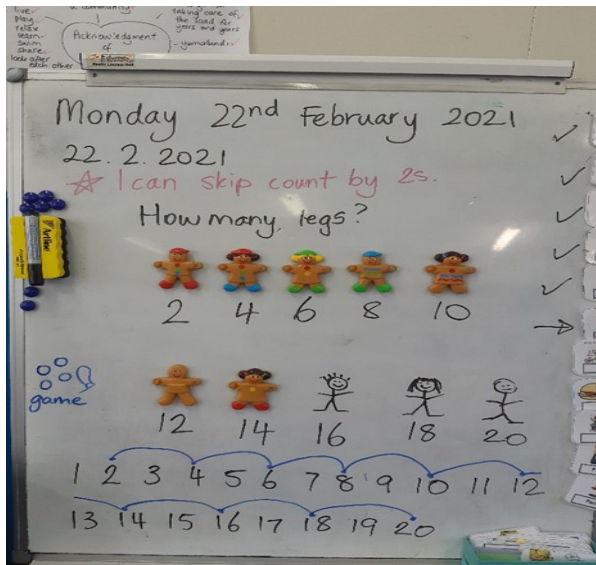 live
play
relax
learn
swim
share
look after
each other
a community
Acknowledgment
of
taking care of
the land for
years and years
Monday 22nd February 2021
22.2.2021
I can skip count by 2s.
How many legs?
Artline
2 4 6 8 10
game
12 14 16 18 20
1 2 3 4 5 6 7 8 9 10 11 12
13 14 15 16 17 18 19 20